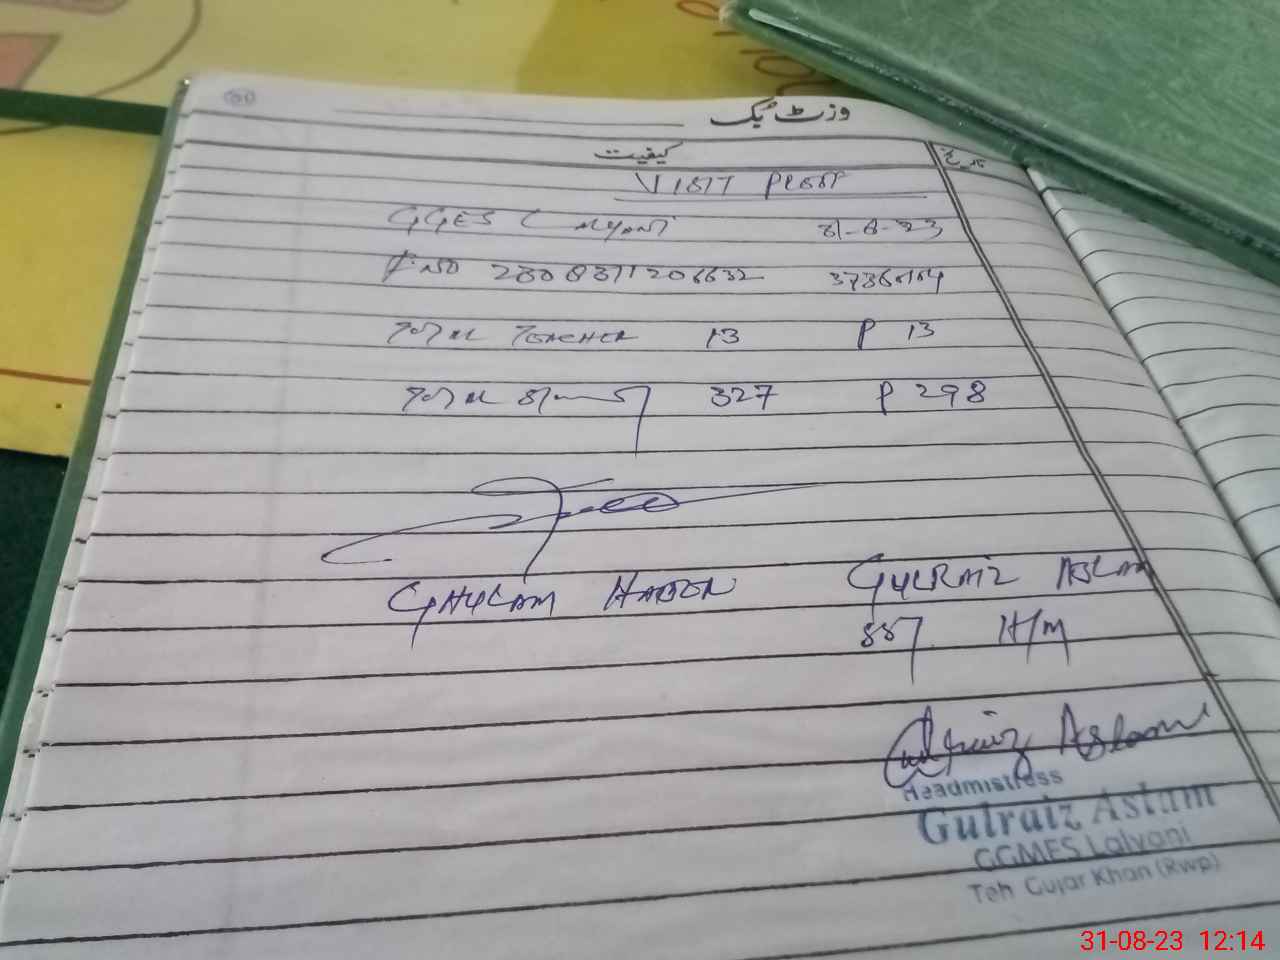 وزٹ بُک
کیفیت تاریخ
VISIT PROOF
GGES Lalyani 31-8-23
F.NO 2308371206632 37360104
TOTAL TEACHER 13 P 13
TOTAL 327 P 298
GHULAM GULRAIZ ASLAM
887 H/M
Gulraiz Aslam
Headmistress
Gulraiz Aslam
GGMES Lalyani
Teh Gujar Khan (Rwp)
31-08-23 12:14